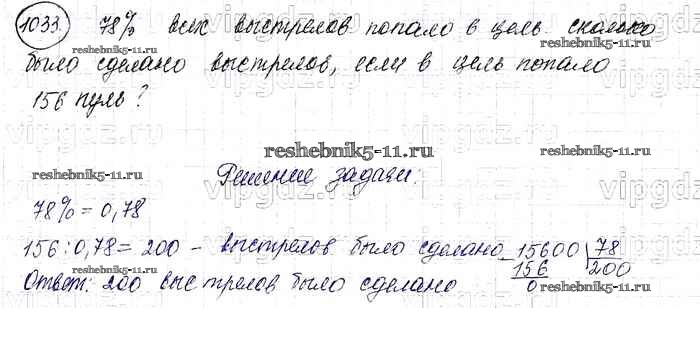 1033. 78% всех выстрелов попало в цель. сколько
было сделано выстрелов, если в цель попало
156 пуль?
reshebnik5-11.ru
Решение задачи.
78% = 0,78
156 : 0,78 = 200 – выстрелов было сделано
Ответ: 200 выстрелов было сделано
15600 78
156 200
0
reshebnik5-11.ru
reshebnik5-11.ru
reshebnik5-11.ru
reshebnik5-11.ru
reshebnik5-11.ru
vipgdz.ru
vipgdz.ru
vipgdz.ru